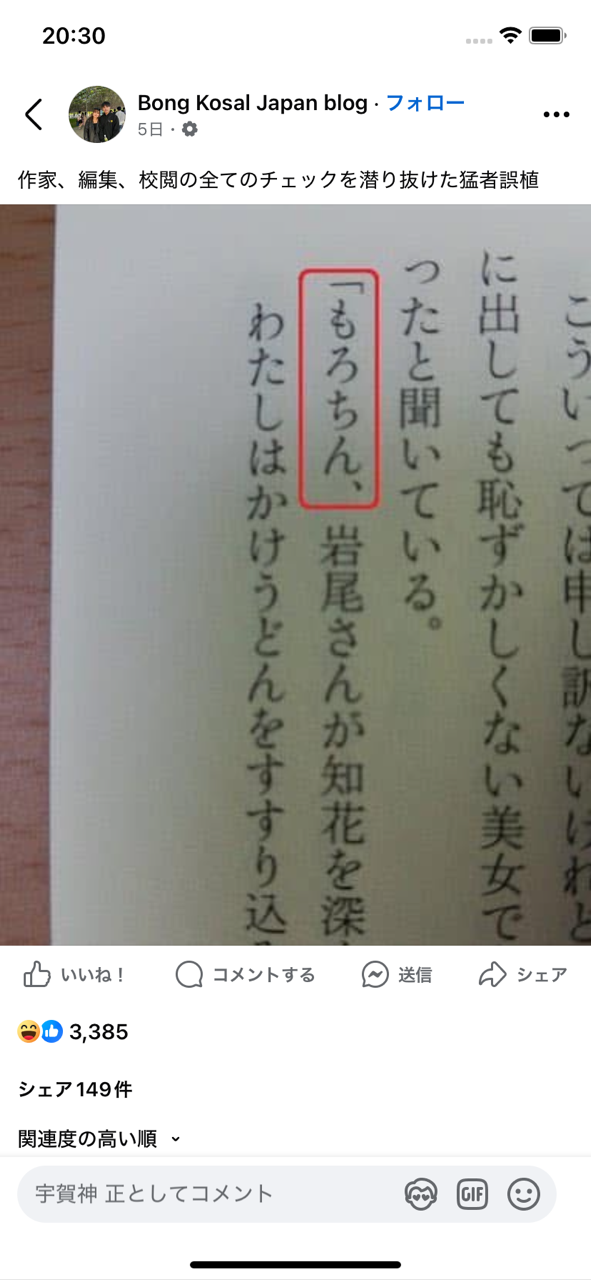 20:30
Bong Kosal Japan blog · フォロー
5日 ·
作家、編集、校閲の全てのチェックを潜り抜けた猛者誤植
こういっては申し訳ないけれど
に出しても恥ずかしくない美女で
ったと聞いている。
「もろちん、岩尾さんが知花を深
わたしはかけうどんをすすり込
いいね！ コメントする 送信 シェア
3,385
シェア149件
関連度の高い順
宇賀神 正としてコメント GIF